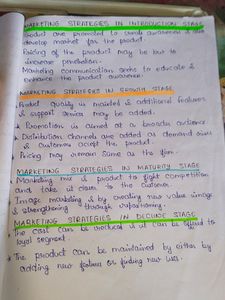 MARKETING STRATEGIES IN INTRODUCTION STAGE
Product are promoted to create awareness &
develop market for the product.
Pricing of the product may be low to
increase penetration.
Marketing communication seeks to educate &
enhance the product awareness.
MARKETING STRATEGIES IN GROWTH STAGE
Product quality is maintained & additional features
& support service may be added.
Promotion is aimed at a broader audience
Distribution channels are added as demand
& customers accept the product.
Pricing may remain same as the firm.
MARKETING STRATEGIES IN MATURITY STAGE
Marketing mix & product to fight competition
and take it closer to the customer.
Image marketing & by creating new value image
& strengthening through repositioning.
MARKETING STRATEGIES IN DECLINE STAGE
The cost can be reduced & it can be
loyal segment.
The product can be maintained by either by
adding new features or finding new uses.